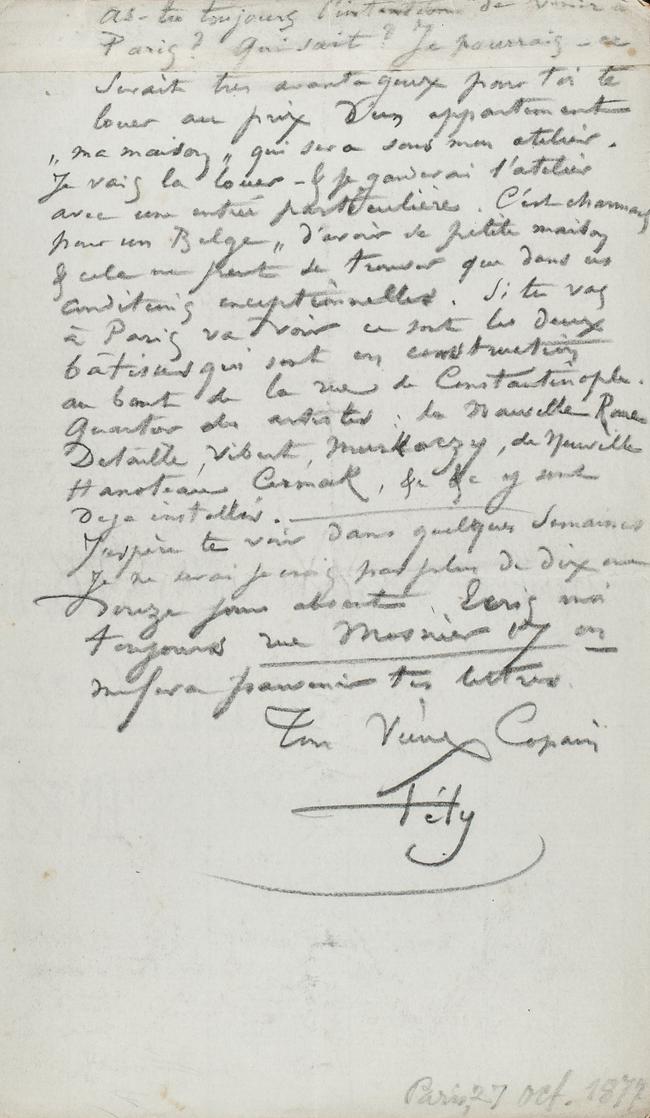 as-tu toujours l'intention de venir à
Paris? Qui sait? Je pourrais – ce
serait très avantageux pour toi te
louer au prix d'un appartement
„ma maison„ qui sera sous mon atelier.
Je vais la louer – & je garderai l'atelier
avec une entrée particulière. C'est charmant
pour un Belge „ d'avoir sa petite maison
& cela ne peut se trouver que dans ces
conditions exceptionnelles. Si tu vas
à Paris va voir ce sont les deux
bâtisses qui sont en construction
au bout de la rue de Constantinople.
Quartier des artistes: la Nouvelle Rome
Detaille, Vibert, Munkaczy, de Neuville
Hanoteau Cermak, &c &c y sont
déjà installés.
J'espère te voir dans quelques semaines
Je ne serai je crois pas plus de dix ou
douze jours absent. Ecris moi
toujours rue Mosnier 17 on
me fera parvenir tes lettres.
Ton Vieux Copain
Fély
Paris, 27 oct. 1877